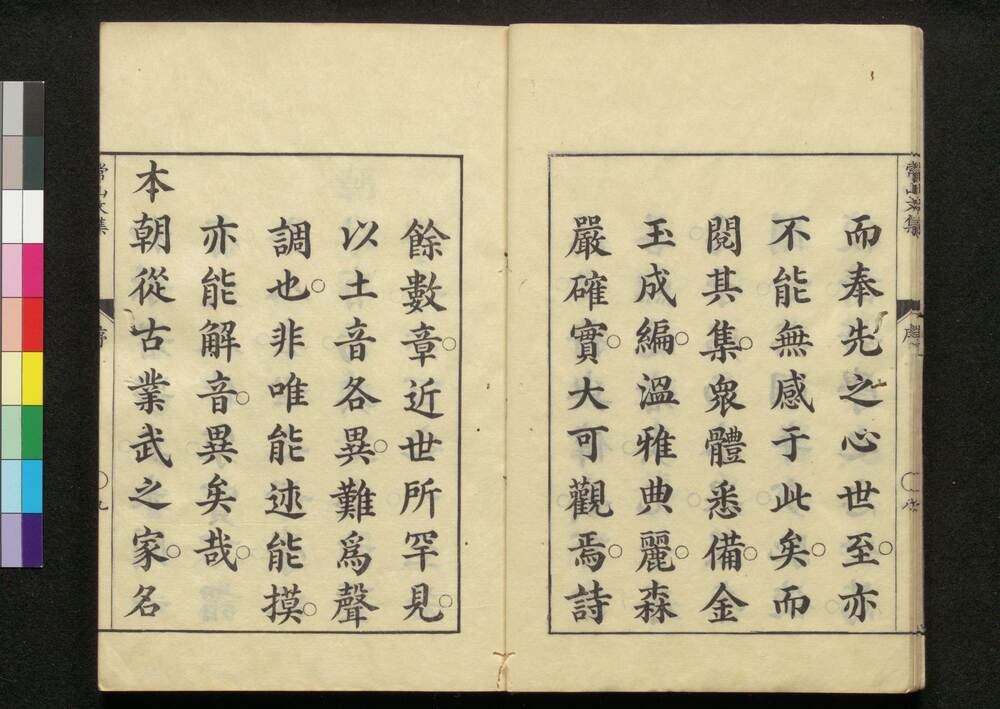 而奉先之心世至○亦
不能無感于此矣○而
閲其集○衆體悉備○金
玉成編○溫雅典麗○森
嚴確實○大可觀焉○詩
餘數章○近世所罕見○
以土音各異○難爲聲
調也○非唯能述能摸○
亦能解音○異矣哉○
本朝從古業武之家○名
常山文集
序
九